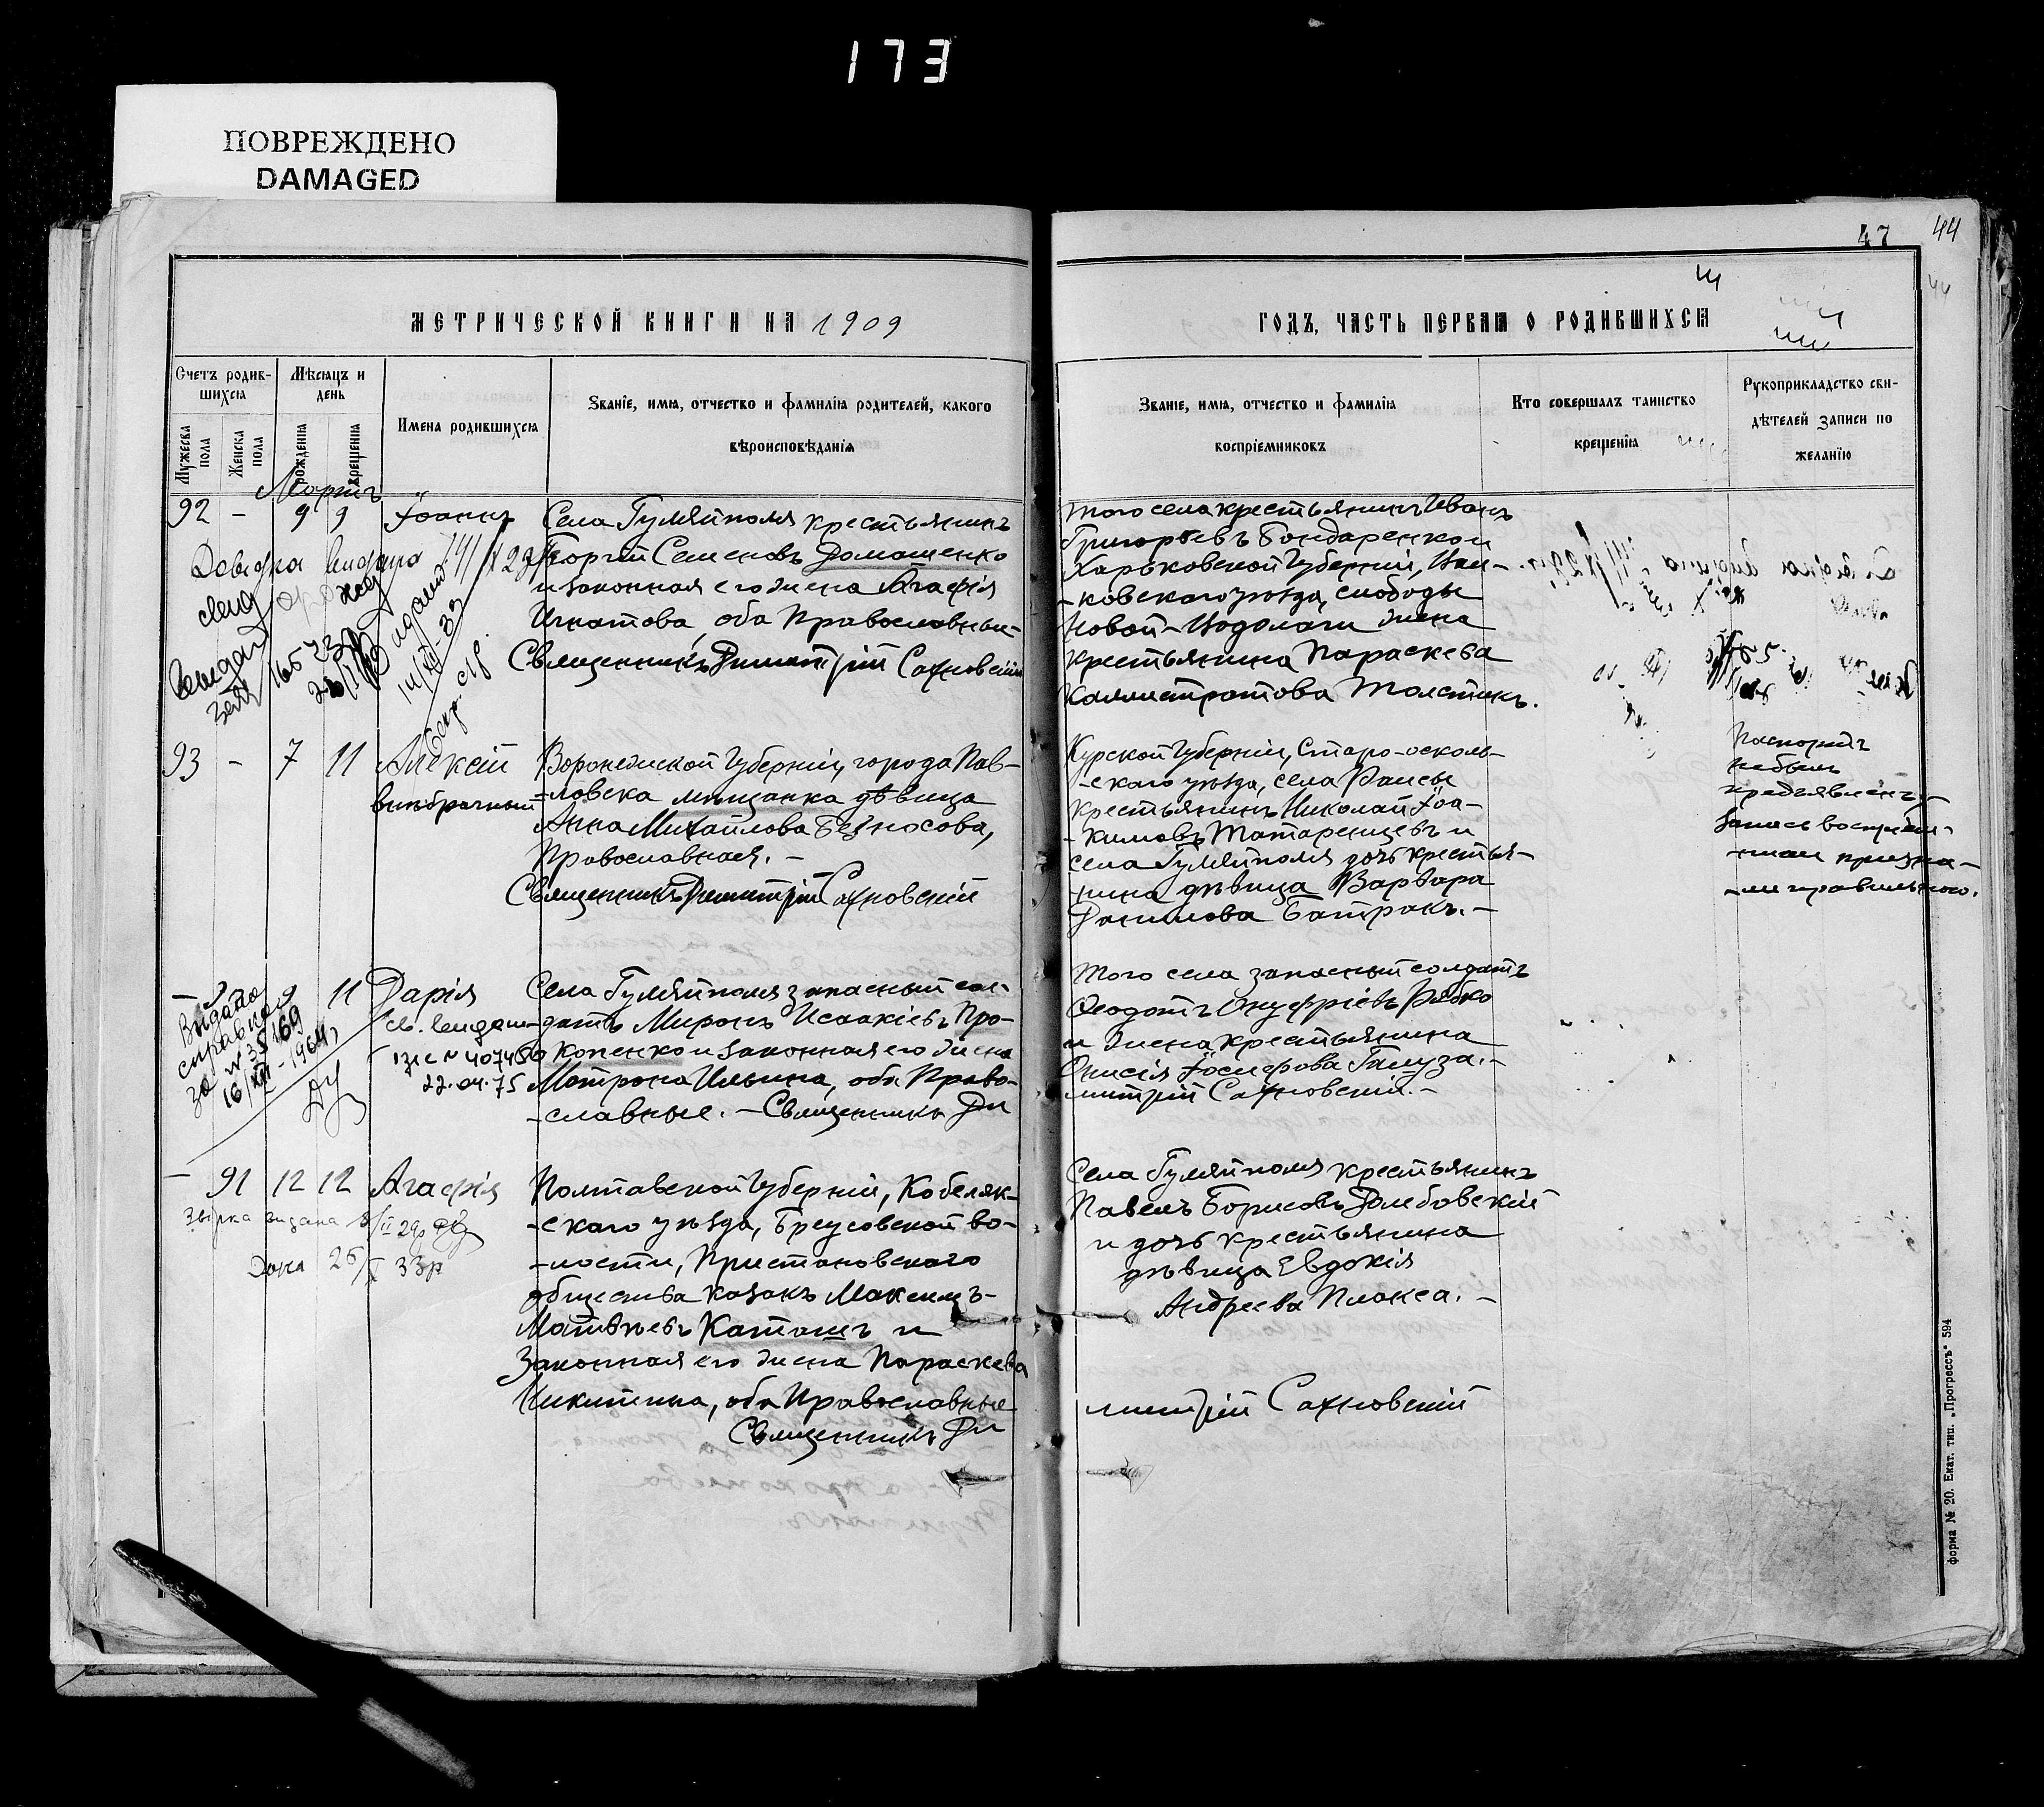 173
ПОВРЕЖДЕНО
DAMAGED
47
44
МЕТРИЧЕСКОЙ КНИГИ НА 1909
ГОДЪ, ЧАСТЬ ПЕРВАЯ О РОДИВШИХСЯ
Счетъ родив-
шихся
Мужеска пола
Женска пола
Мѣсяцъ и
день
рожденія
крещенія
Имена родившихся
Званіе, имя, отчество и фамилія родителей, какого
вѣроисповѣданія
Званіе, имя, отчество и фамилія
воспріемниковъ
Кто совершалъ таинство
крещенія
Рукоприкладство сви-
дѣтелей записи по
желанію
Мартъ
92 - 9 9 Іоаннъ
Села Гуляйполя крестьянинъ
Георгій Семеновъ Домашенко
и законная его жена Агафія
Игнатова, оба Православные
Священникъ Димитрій Сахновскій
того села крестьянинъ Иванъ
Григорьевъ Бондаренко и
Харьковской Губерніи,
-ковскаго уѣзда, слободы
Новой-Водолаги жена
крестьянина Параскева
Каллистратова Толстикъ.
Довидка видана
93 - 7 11 Алексій
внѣбрачный
Воронежской Губерніи, города Пав-
-ловска мѣщанка дѣвица
Анна Михайлова Безносова,
Православная. -
Священникъ Димитрій Сахновскій
Курской Губерніи, Старо-осколь-
-скаго уѣзда, села
крестьянинъ Николай Іоа-
-кимовъ Татаренцевъ и
села Гуляйполя дочь крестья-
-нина дѣвица Варвара
Данилова Батракъ. -
Паспортъ
небылъ
предъявленъ,
Запись воспріем-
-ники призна-
-ли правильною.
- 9 11 Дарія
Видано
справка
за № 35169
16/XII-1964
22.04.75
Села Гуляйполя запасный сол-
-датъ Миронъ Исаакіевъ Про-
копенко и законная его жена
Матрона Ильина, оба Право-
-славные. - Священникъ Ди
того села запасный солдатъ
Феодотъ Онуфріевъ Рябко
и жена крестьянина
Онисія Іосифова Галуза. -
митрій Сахновскій. -
- 91 12 12 Агафія
видана
26/X 33р
Полтавской Губерніи, Кобеляк-
-скаго уѣзда, Бреусовской во-
-лости, Пристановскаго
общества казакъ Максимъ
Матвѣевъ Каташъ и
Законная его жена Параскева
Никитина, оба Православные
Священникъ Ди
Села Гуляйполя крестьянинъ
Павелъ Борисовъ Домбовскій
и дочь крестьянина
дѣвица Евдокія
Андреева Плакса. -
митрій Сахновскій
форма № 20. Екат. тип. „Прогрессъ“ 594